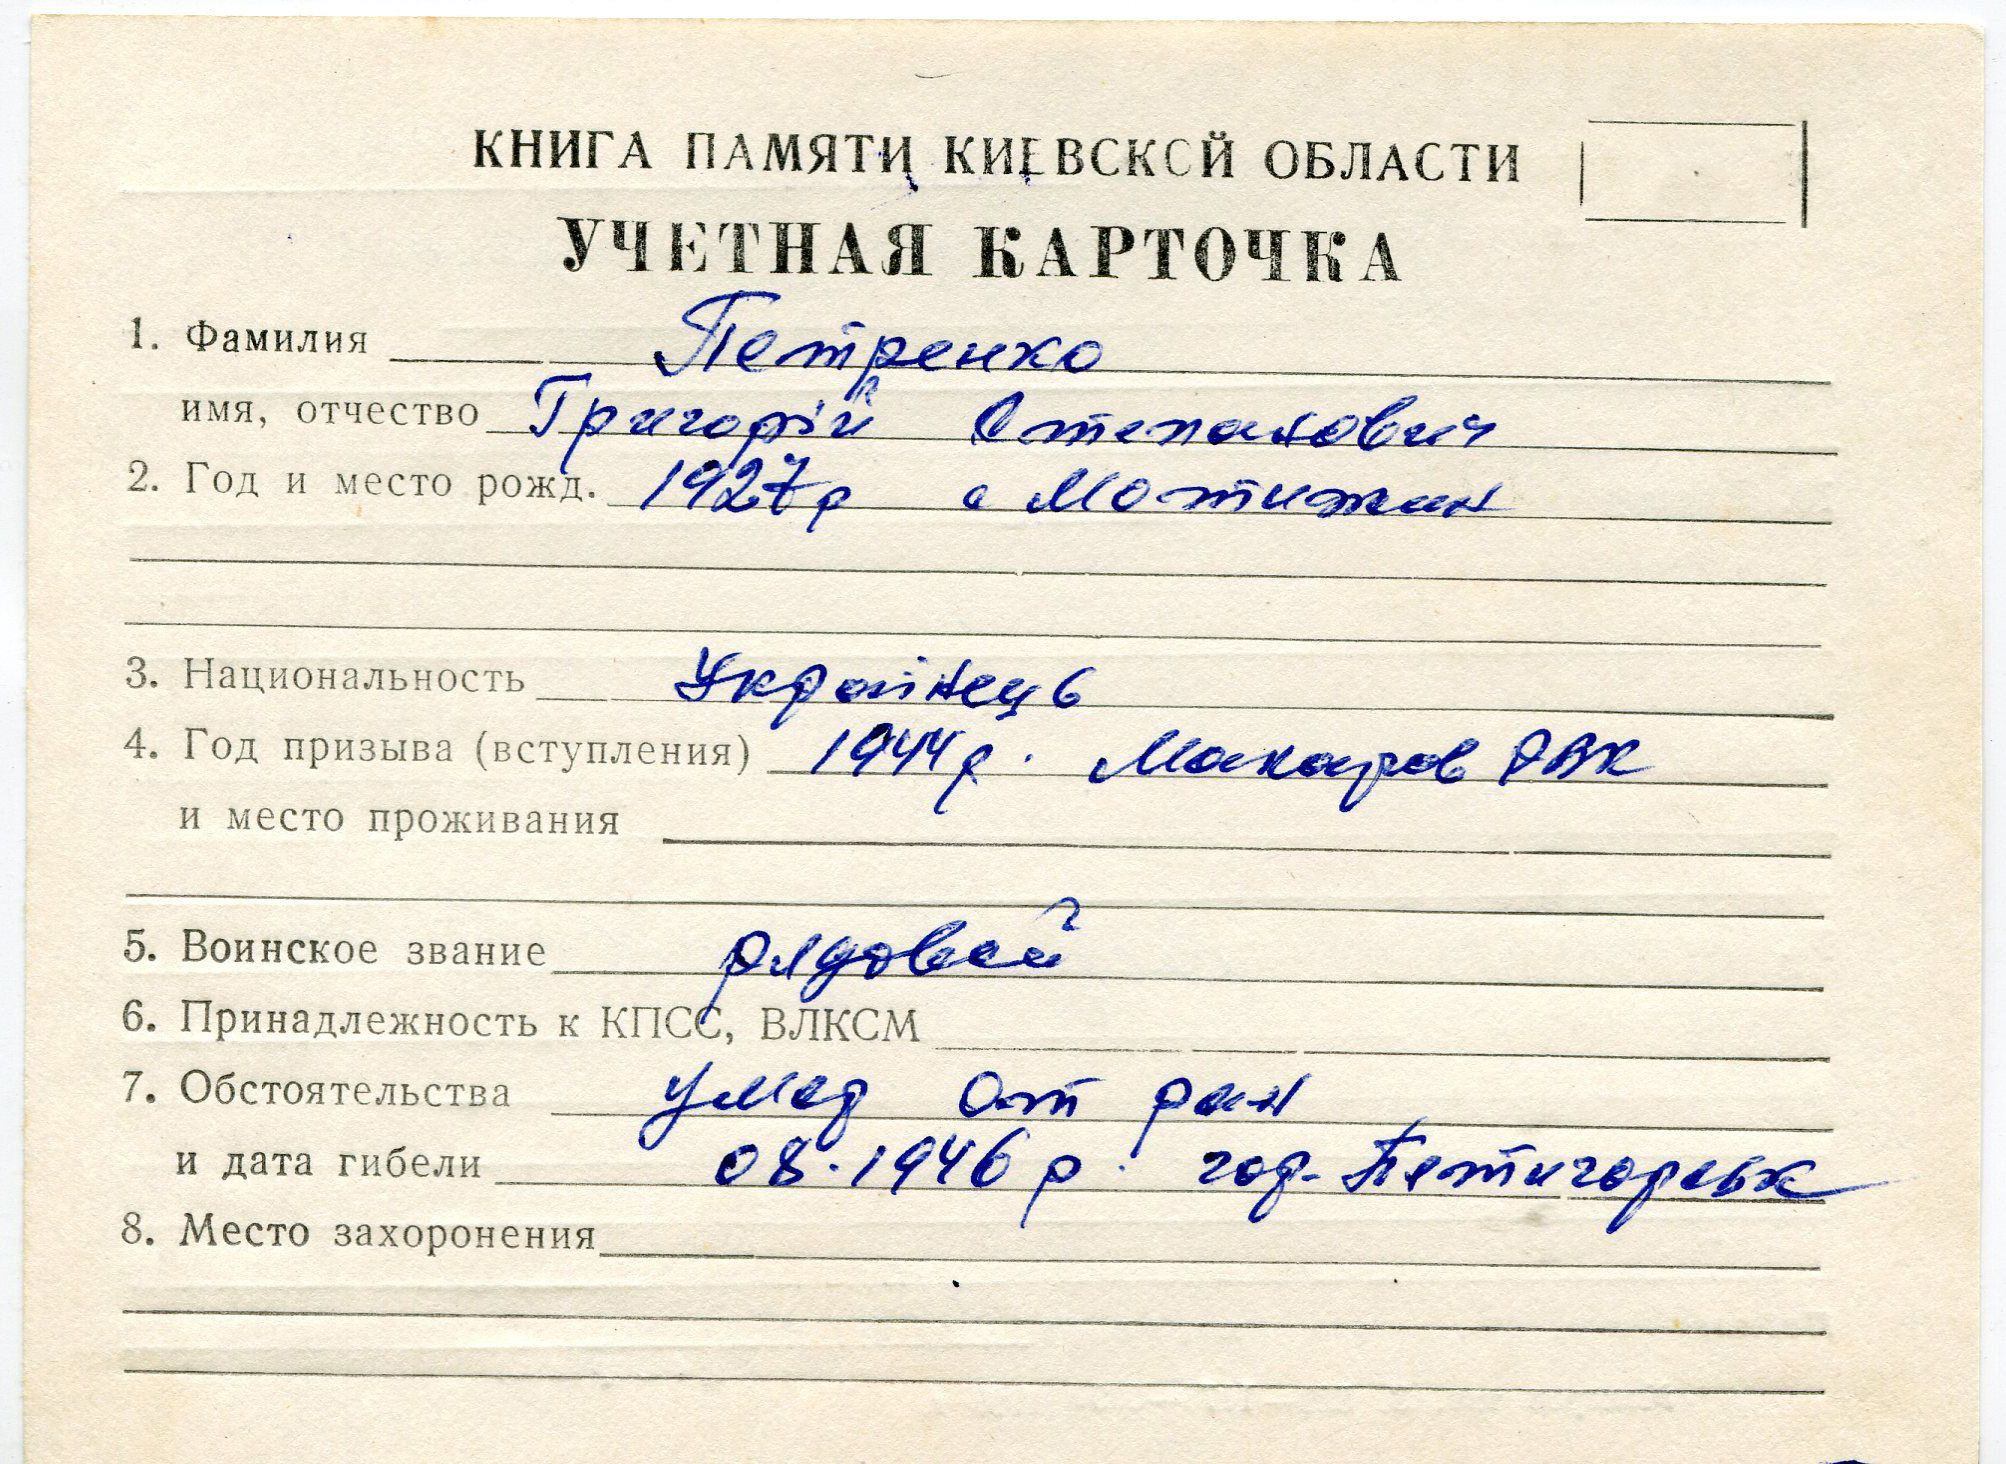 КНИГА ПАМЯТИ КИЕВСКОЙ ОБЛАСТИ
УЧЕТНАЯ КАРТОЧКА
1. Фамилия Петренко
имя, отчество Григорій Степанович
2. Год и место рожд. 1927р с Мотижин
3. Национальность Українець
4. Год призыва (вступления) 1944р. Макаров РВК
и место проживания
5. Воинское звание рядовой
6. Принадлежность к КПСС, ВЛКСМ
7. Обстоятельства умер от ран
и дата гибели 08.1946 р. гор. Пятигорськ
8. Место захоронения